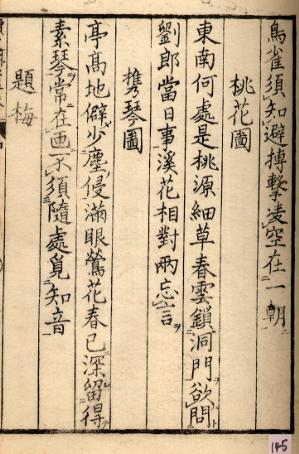 鳥雀須知避搏擊凌空在一朝
桃花圖
東南何處是桃源細草春雲鎖洞門欲問
劉郎當日事溪花相對兩忘言
携琴圖
亭高地僻少塵侵滿眼鶯花春已深留得
素琴常在画不須隨處覓知音
題梅
145